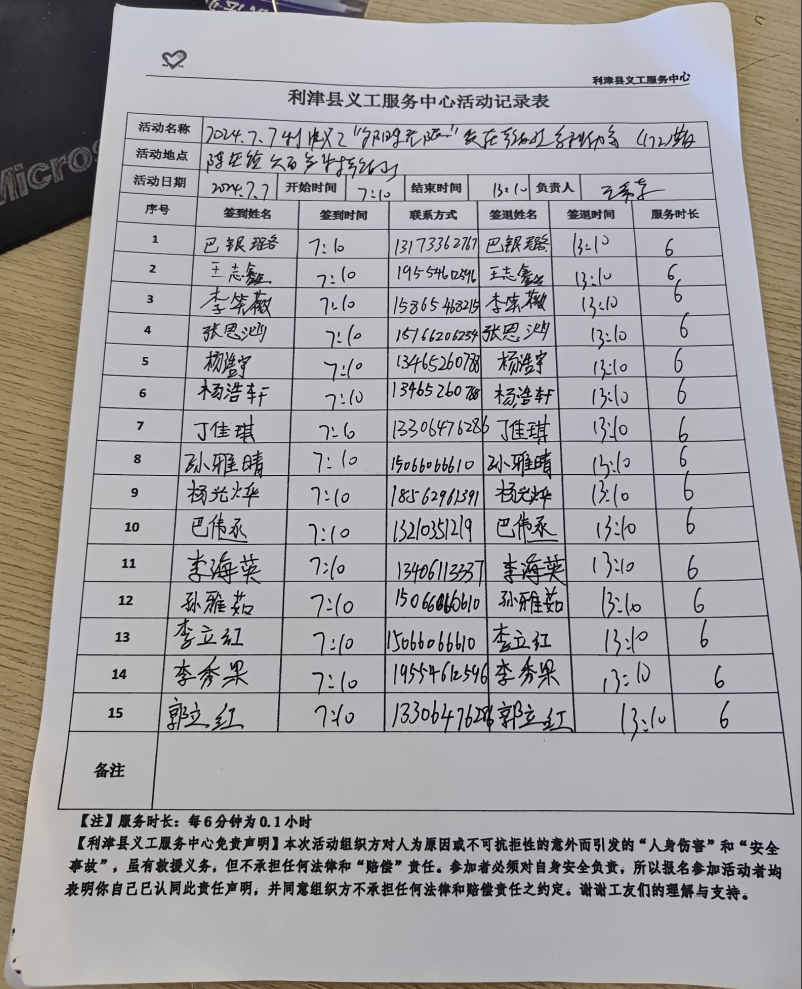 Micros
利津县义工服务中心
利津县义工服务中心活动记录表
活动名称 2024.7.7利津义工
活动地点
活动日期 2024.7.7 开始时间 7:10 结束时间 13:10 负责人
序号 签到姓名 签到时间 联系方式 签退姓名 签退时间 服务时长
1 巴银璐 7:10 13173362767 巴银璐 13:10 6
2 王志鑫 7:10 19554612596 王志鑫 13:10 6
3 李笑薇 7:10 15865468215 李笑薇 13:10 6
4 张恩 7:10 15166206234 张恩 13:10 6
5 杨浩宇 7:10 13465260788 杨浩宇 13:10 6
6 杨浩轩 7:10 13465260788 杨浩轩 13:10 6
7 丁佳琪 7:10 13306476286 丁佳琪 13:10 6
8 孙雅晴 7:10 15066066610 孙雅晴 13:10 6
9 杨光烨 7:10 18562961391 杨光烨 13:10 6
10 巴伟丞 7:10 13210351219 巴伟丞 13:10 6
11 李海英 7:10 13406113337 李海英 13:10 6
12 孙雅茹 7:10 15066066610 孙雅茹 13:10 6
13 李立红 7:10 15066066610 李立红 13:10 6
14 李秀果 7:10 19554612596 李秀果 13:10 6
15 郭立红 7:10 13306476286 郭立红 13:10 6
备注
【注】服务时长：每6分钟为0.1小时
【利津县义工服务中心免责声明】本次活动组织方对人为原因或不可抗拒性的意外而引发的“人身伤害”和“安全
事故”，虽有救援义务，但不承担任何法律和“赔偿”责任。参加者必须对自身安全负责，所以报名参加活动者均
表明你自己已认同此责任声明，并同意组织方不承担任何法律和赔偿责任之约定。谢谢工友们的理解与支持。